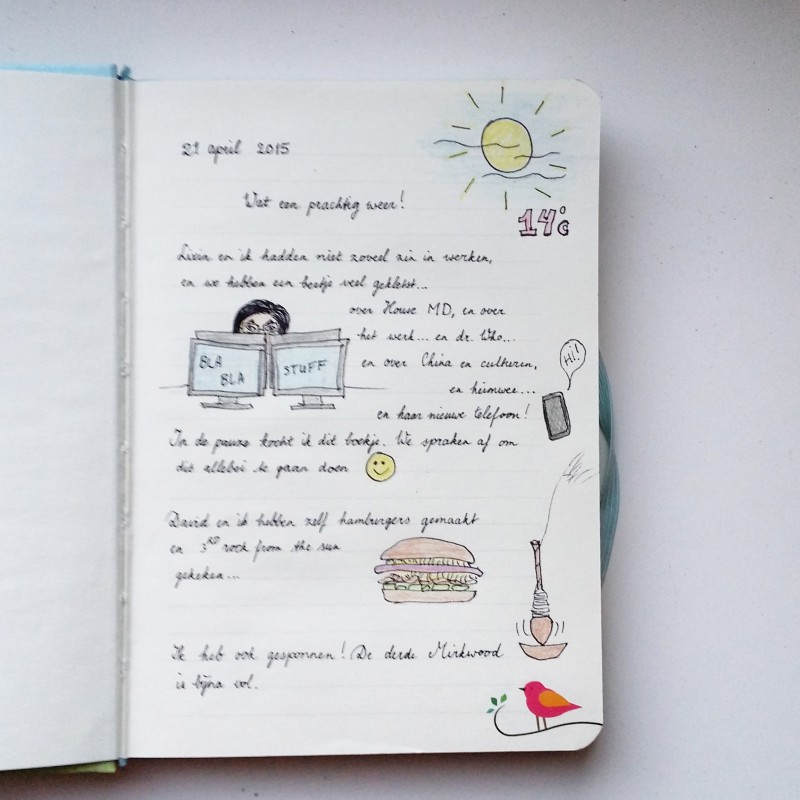 21 april 2015
Wat een prachtig weer!
14°C
Lixin en ik hadden niet zoveel zin in werken,
en we hebben een beetje veel gekletst...
over House MD, en over
het werk... en dr. Who...
en over China en culturen,
en heimwee...
en haar nieuwe telefoon!
BLA
BLA
STUFF
Hi!
In de pauze kocht ik dit boekje. We spraken af om
dit allebei te gaan doen
David en ik hebben zelf hamburgers gemaakt
en 3RD rock from the sun
gekeken...
Ik heb ook gesponnen! De derde Mirkwood
is bijna vol.